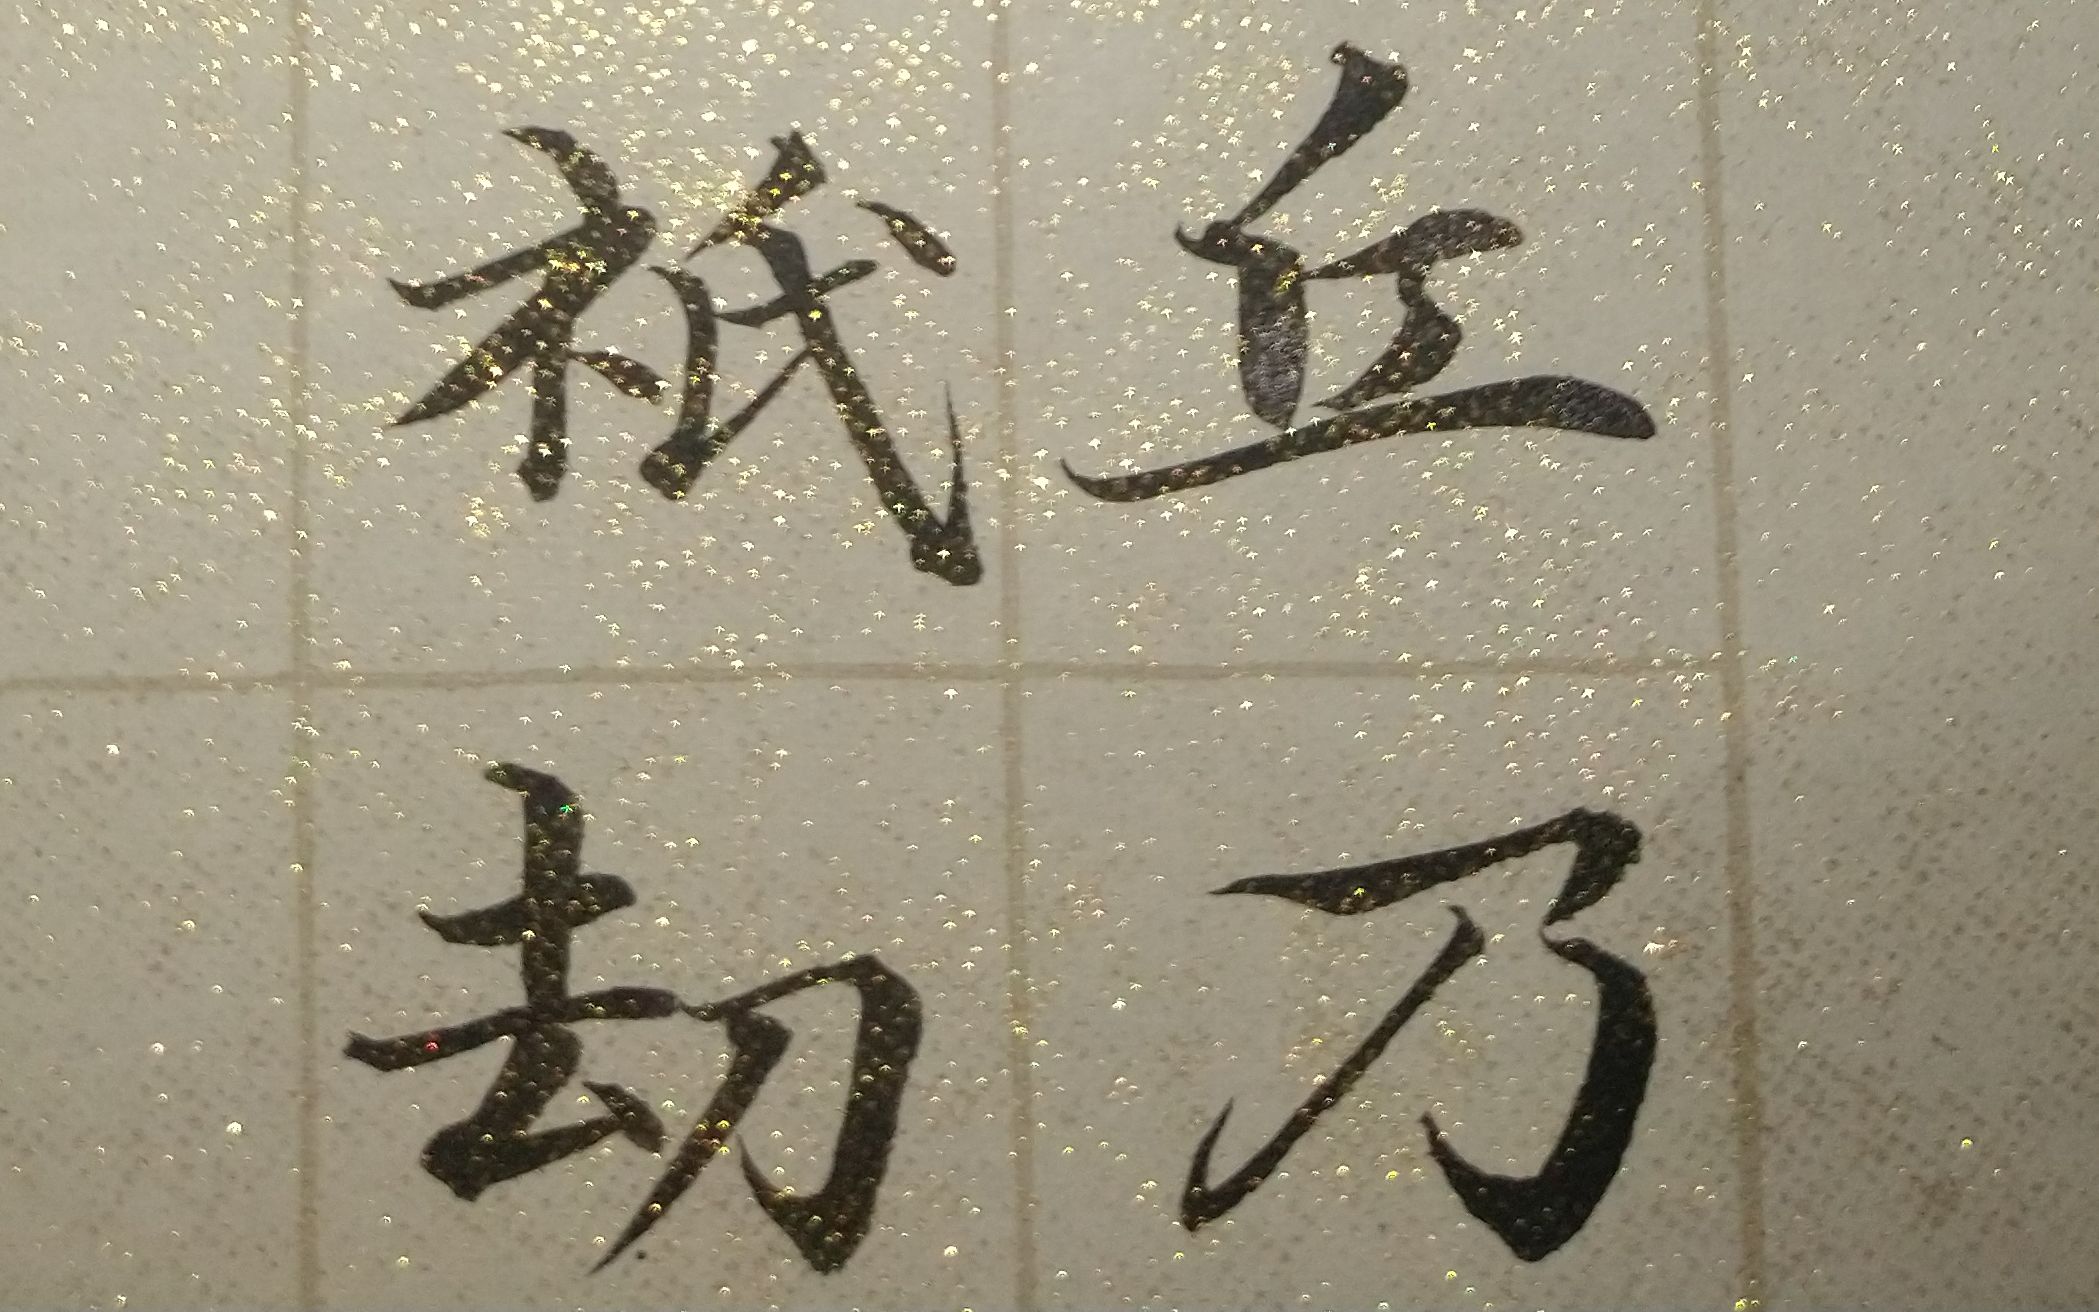 丘乃
祇劫